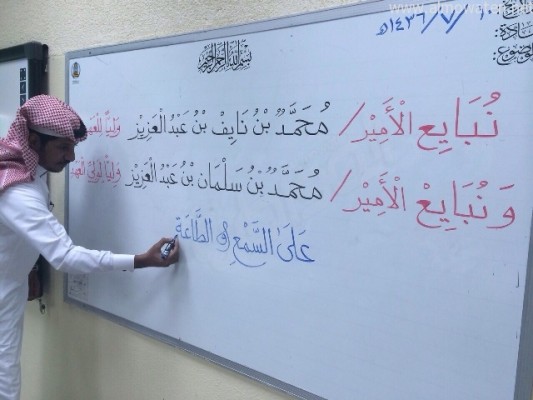 ١٤٣٦/٧/١٠هـ
بسم الله الرحمن الرحيم
نُبَايِع الْأَمِيْر/ مُحَمَّدُ بْنُ نَايِفْ بْنُ عَبْدِ الْعَزِيْز وَلِيًّا لِلْعَهْدِ
وَ نُبَايِعْ الْأَمِيْر/ مُحَمَّدُ بْنُ سَلْمَان بْنُ عَبْدِ الْعَزِيْز وَلِيًّا لِوَلِيِّ الْعَهْدِ
عَلَىٰ السَّمْعِ وَ الطَّاعَةِ